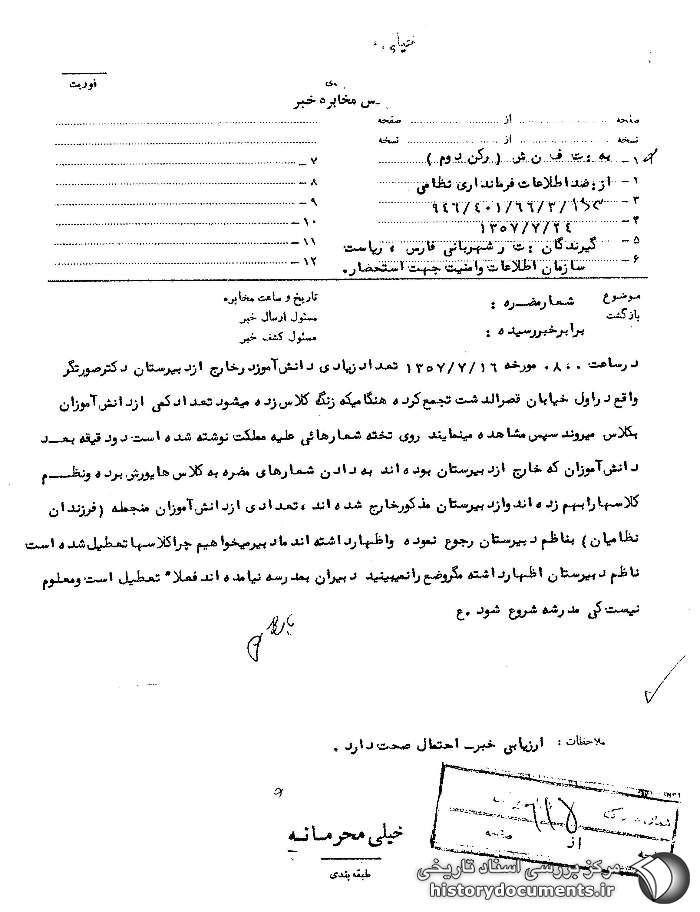 فوریت
س مخابره خبر
صفحه از صفحه
نسخه از نسخه
۱ـ به : ت ف ن ش ( رکن دوم )
۲ـ از : ضد اطلاعات فرمانداری نظامی
۳ـ ۹۴۶/۴۰۱/۶۶/۳/
۴ـ ۱۳۵۷/۷/۲۴
۵ـ گیرندگان : ت ر شهربانی فارس ، ریاست
۶ـ سازمان اطلاعات وامنیت جهت استحضار .
۷ـ
۸ـ
۹ـ
۱۰ـ
۱۱ـ
۱۲ـ
موضوع : شعار مضره
بازگشت
برابر خبر رسیده :
تاریخ و ساعت مخابره
مسئول ارسال خبر
مسئول کشف خبر
در ساعت ۰۸۰۰ مورخه ۱۳۵۷/۷/۱۶ تعداد زیادی دانش آموز در خارج از دبیرستان دکتر صورتگر
واقع در اول خیابان قصرالدشت تجمع کرده هنگامیکه زنگ کلاس زده میشود تعداد کمی از دانش آموزان
بکلاس میروند سپس مشاهده مینمایند روی تخته شعارهائی علیه مملکت نوشته شده است دو دقیقه بعد
دانش آموزان که خارج از دبیرستان بوده اند به دادن شعارهای مضره به کلاس ها یورش برده ونظم
کلاسها را بهم زده اند واز دبیرستان مذکور خارج شده اند ، تعدادی از دانش آموزان منجمله ( فرزندان
نظامیان ) بناظم دبیرستان رجوع نموده واظهار داشته اند ما دبیر میخواهیم چرا کلاسها تعطیل شده است
ناظم دبیرستان اظهار داشته مگر وضع را نمیبینید دبیران بمدرسه نیامده اند فعلا" تعطیل است ومعلوم
نیست کی مدرشه شروع شود . ع
ملاحظات : ارزیابی خبر ـ احتمال صحت دارد .
خیلی محرمانه
طبقه بندی
۶۱۵
از صفحه
مرکز بررسی اسناد تاریخی
historydocuments.ir